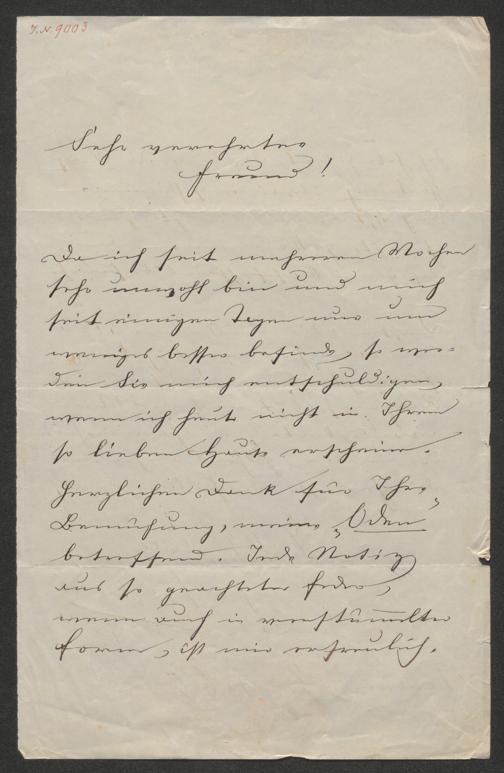 I.N. 9003
Sehr verehrter
Freund!
Da ich seit mehreren Wochen
sehr unwohl bin und mich
seit einigen Tagen nur um
weniges besser befinde, so wer=
den Sie mich entschuldigen,
wenn ich heute nicht in Ihrem
so lieben Hause erscheine.
Herzlichen Dank für Ihre
Bemühung, meine „Oden"
betreffend. Jede Notiz
aus so geachteter Feder,
wenn auch in verstümmelter
Form, ist mir erfreulich.